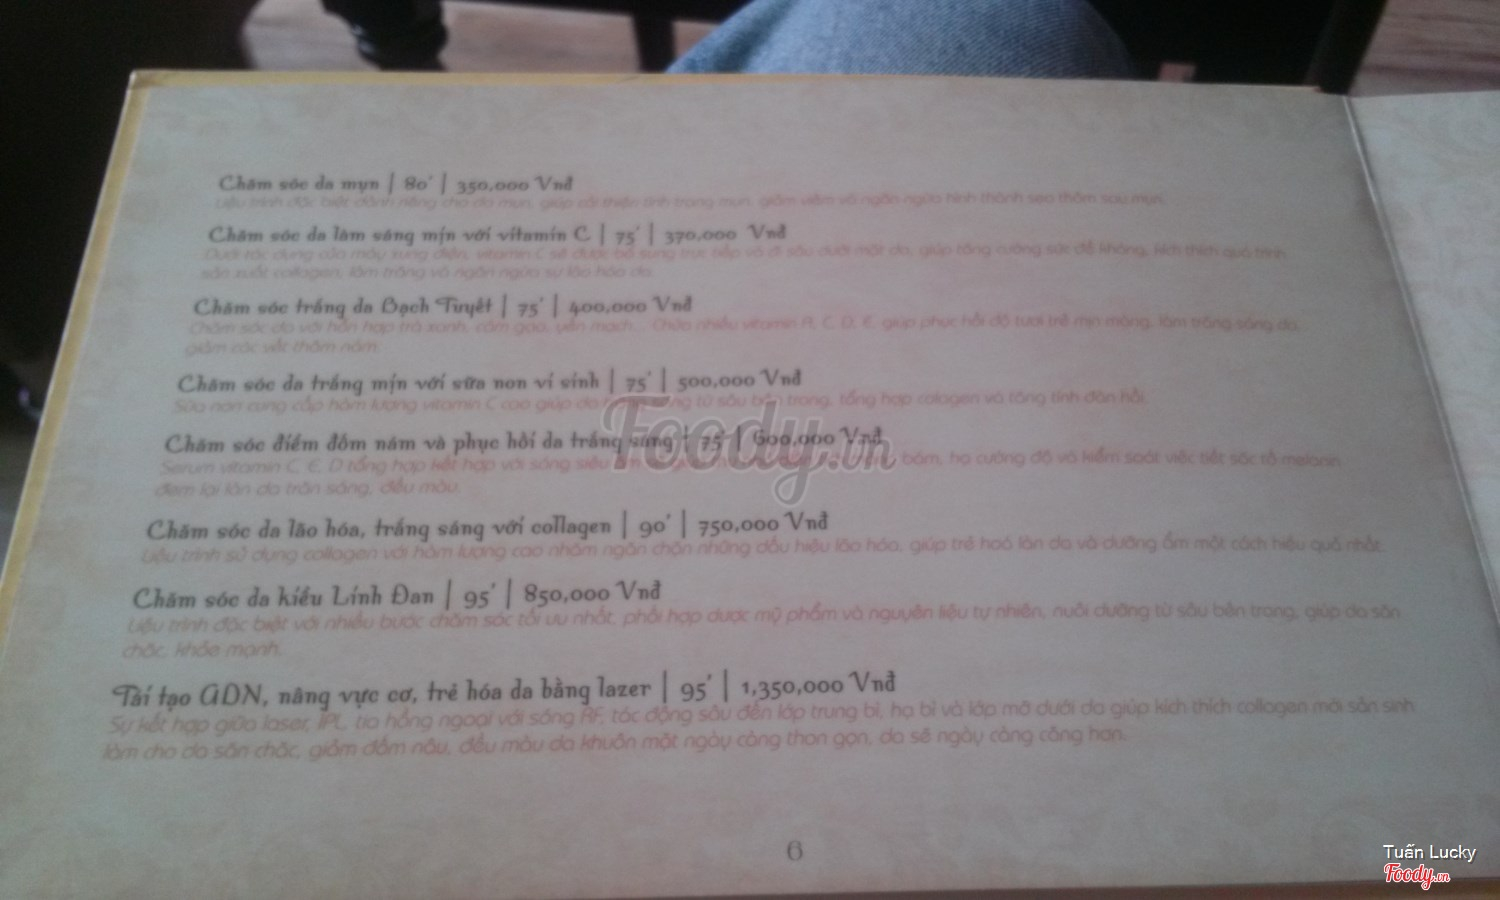 Chăm sóc da mụn | 80' | 350,000 Vnđ
Liệu trình đặc biệt dành riêng cho da mụn, giúp cải thiện tình trạng mụn, giảm viêm và ngăn ngừa hình thành sẹo thâm sau mụn.
Chăm sóc da làm sáng mịn với vitamin C | 75' | 370,000 Vnđ
Dưới tác dụng của máy xung điện, vitamin C sẽ được bổ sung trực tiếp và đi sâu dưới mặt da, giúp tăng cường sức đề kháng, kích thích quá trình
sản xuất collagen, làm trắng và ngăn ngừa sự lão hóa da.
Chăm sóc trắng da Bạch Tuyết | 75' | 400,000 Vnđ
Chăm sóc da với hỗn hợp trà xanh, cám gạo, yến mạch... Chứa nhiều vitamin A, C, D, E, giúp phục hồi độ tươi trẻ mịn màng, làm trắng sáng da,
giảm các vết thâm nám.
Chăm sóc da trắng mịn với sữa non vi sinh | 75' | 500,000 Vnđ
Sữa non cung cấp hàm lượng vitamin C cao giúp da từ sâu bên trong, tổng hợp colagen và tăng tính đàn hồi.
Chăm sóc điểm đốm nám và phục hồi da trắng sáng | 75' | 600,000 Vnđ
Serum vitamin C, E, D tổng hợp kết hợp với sóng siêu bám, hạ cường độ và kiểm soát việc tiết sắc tố melanin
đem lại làn da trăn sáng, đều màu.
Chăm sóc da lão hóa, trắng sáng với collagen | 90' | 750,000 Vnđ
Liệu trình sử dụng collagen với hàm lượng cao nhằm ngăn chặn những dấu hiệu lão hóa, giúp trẻ hoá làn da và dưỡng ẩm một cách hiệu quả nhất.
Chăm sóc da kiểu Linh Đan | 95' | 850,000 Vnđ
Liệu trình đặc biệt với nhiều bước chăm sóc tối ưu nhất, phối hợp dược mỹ phẩm và nguyên liệu tự nhiên, nuôi dưỡng từ sâu bên trong, giúp da săn
chắc, khỏe mạnh.
Tái tạo ADN, nâng vực cơ, trẻ hóa da bằng lazer | 95' | 1,350,000 Vnđ
Sự kết hợp giữa laser, IPL, tia hồng ngoại với sóng RF, tác động sâu đến lớp trung bì, hạ bì và lớp mỡ dưới da giúp kích thích collagen mới sản sinh
làm cho da săn chắc, giảm đốm nâu, đều màu da khuôn mặt ngày càng thon gọn, da sẽ ngày càng căng hơn.
Foody.vn
6
Tuấn Lucky
Foody.vn